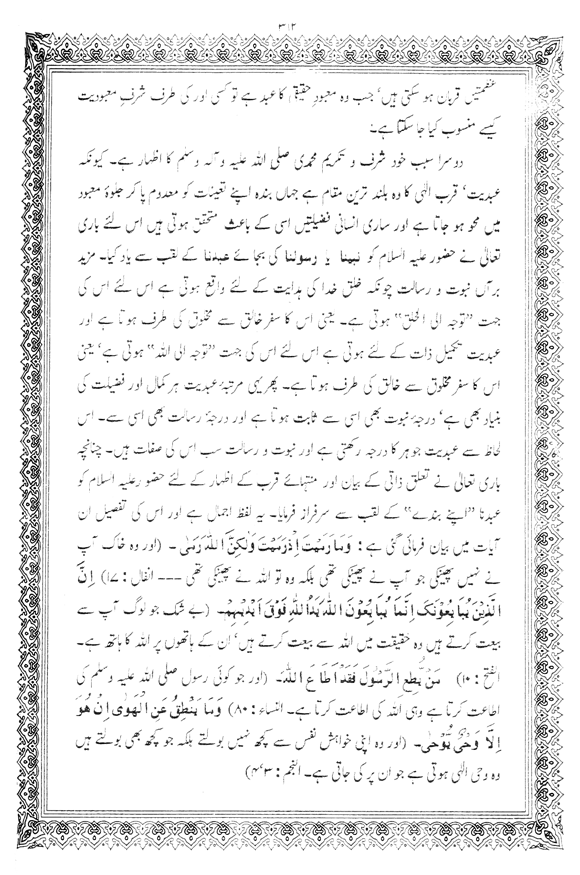 ۳۱۲
عظمتیں قربان ہو سکتی ہیں‘ جب وہ معبودِ حقیقی کا عبد ہے تو کسی اور کی طرف شرفِ معبودیت
کیسے منسوب کیا جا سکتا ہے۔
دوسرا سبب خود شرف و تکریم محمدی صلی اللہ علیہ و آلہ وسلم کا اظہار ہے۔ کیونکہ
عبدیت‘ قرب الٰہی کا وہ بلند ترین مقام ہے جہاں بندہ اپنے تعینات کو معدوم پا کر جلوۂ معبود
میں محو ہو جاتا ہے اور ساری انسانی فضیلتیں اسی کے باعث متحقق ہوتی ہیں اس لئے باری
تعالیٰ نے حضور علیہ السلام کو نبینا یا رسولنا کی بجائے عبدنا کے لقب سے یاد کیا۔ مزید
برآں نبوت و رسالت چونکہ خلق خدا کی ہدایت کے لئے واقع ہوتی ہے اس لئے اس کی
جہت ”توجہ الی الخلق“ ہوتی ہے۔ یعنی اس کا سفر خالق سے مخلوق کی طرف ہوتا ہے اور
عبدیت تکمیل ذات کے لئے ہوتی ہے اس لئے اس کی جہت ”توجہ الی اللہ“ ہوتی ہے‘ یعنی
اس کا سفر مخلوق سے خالق کی طرف ہوتا ہے۔ پھر یہی مرتبۂ عبدیت ہر کمال اور فضیلت کی
بنیاد بھی ہے‘ درجۂ نبوت بھی اسی سے ثابت ہوتا ہے اور درجۂ رسالت بھی اسی سے۔ اس
لحاظ سے عبدیت جوہر کا درجہ رکھتی ہے اور نبوت و رسالت سب اس کی صفات ہیں۔ چنانچہ
باری تعالیٰ نے تعلق ذاتی کے بیان اور منتہائے قرب کے اظہار کے لئے حضور علیہ السلام کو
عبدنا ”اپنے بندے“ کے لقب سے سرفراز فرمایا۔ یہ لفظ اجمال ہے اور اس کی تفصیل ان
آیات میں بیان فرمائی گئی ہے : وَمَا رَمَيْتَ اِذْ رَمَيْتَ وَلٰكِنَّ اللّٰهَ رَمٰى ۔ (اور وہ خاک آپ
نے نہیں پھینکی جو آپ نے پھینکی تھی بلکہ وہ تو اللہ نے پھینکی تھی --- انفال : ۱۷) اِنَّ
الَّذِيْنَ يُبَايِعُوْنَكَ اِنَّمَا يُبَايِعُوْنَ اللّٰهَ يَدُ اللّٰهِ فَوْقَ اَيْدِيْهِمْ۔ (بے شک جو لوگ آپ سے
بیعت کرتے ہیں وہ حقیقت میں اللہ سے بیعت کرتے ہیں‘ ان کے ہاتھوں پر اللہ کا ہاتھ ہے۔
الفتح : ۱۰) مَنْ يُّطِعِ الرَّسُوْلَ فَقَدْ اَطَاعَ اللّٰهَ۔ (اور جو کوئی رسول صلی اللہ علیہ وسلم کی
اطاعت کرتا ہے وہی اللہ کی اطاعت کرتا ہے۔ النساء : ۸۰) وَمَا يَنْطِقُ عَنِ الْهَوٰى اِنْ هُوَ
اِلَّا وَحْىٌ يُّوْحٰى۔ (اور وہ اپنی خواہش نفس سے کچھ نہیں بولتے بلکہ جو کچھ بھی بولتے ہیں
وہ وحی الٰہی ہوتی ہے جو ان پر کی جاتی ہے۔ النجم : ۳‘۴)